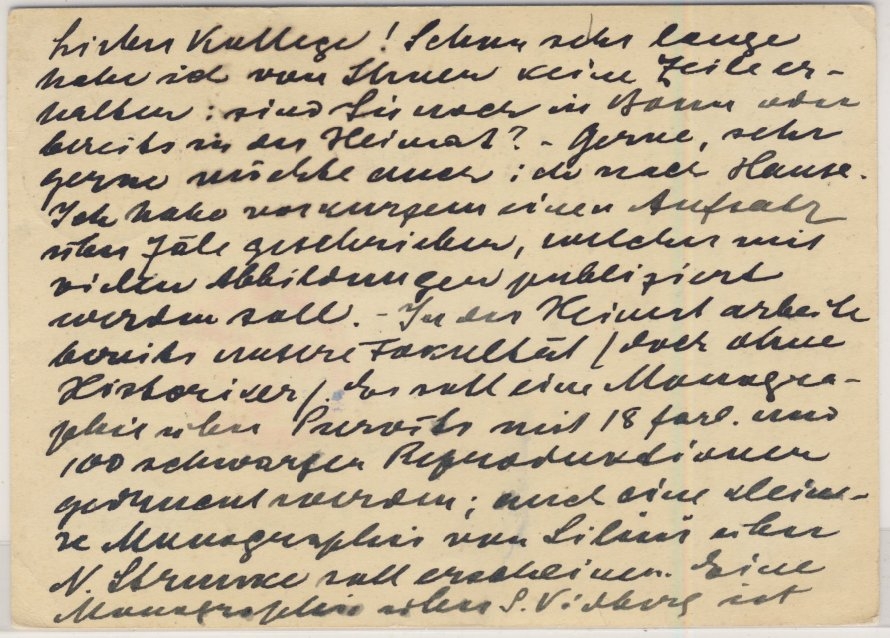 Lieber Kollege! Schon sehr lange
habe ich von Ihnen keine Zeile er-
halten: sind Sie noch in Bonn oder
bereits in der Heimat? - Gerne, sehr
gerne möchte auch ich nach Hause.
Ich habe vor kurzem einen Aufsatz
über Zāle geschrieben, welcher mit
vielen Abbildungen publiziert
werden soll. - In der Heimat arbeite
bereits unsere Fakultät / doch ohne
Historiker /. Es soll eine Monogra-
phie über Purvīts mit 18 farb. und
100 schwarzen Reproduktionen
gedruckt werden; auch eine kleine-
re Monographie von Siliņš über
N. Strunke soll erscheinen. Eine
Monographie über S. Vidberg ist